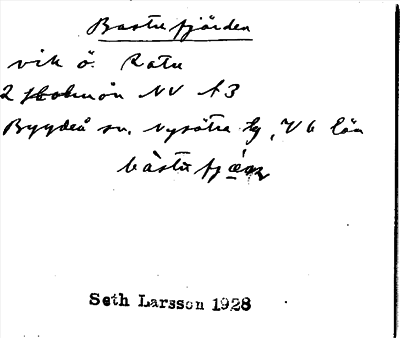 Bastufjärden
vik ö. Ratu
2 Holmön NV A3
Bygdeå sn. Nysätra tg, Vb län
bàstufjæ̀ɳ
Seth Larsson 1928